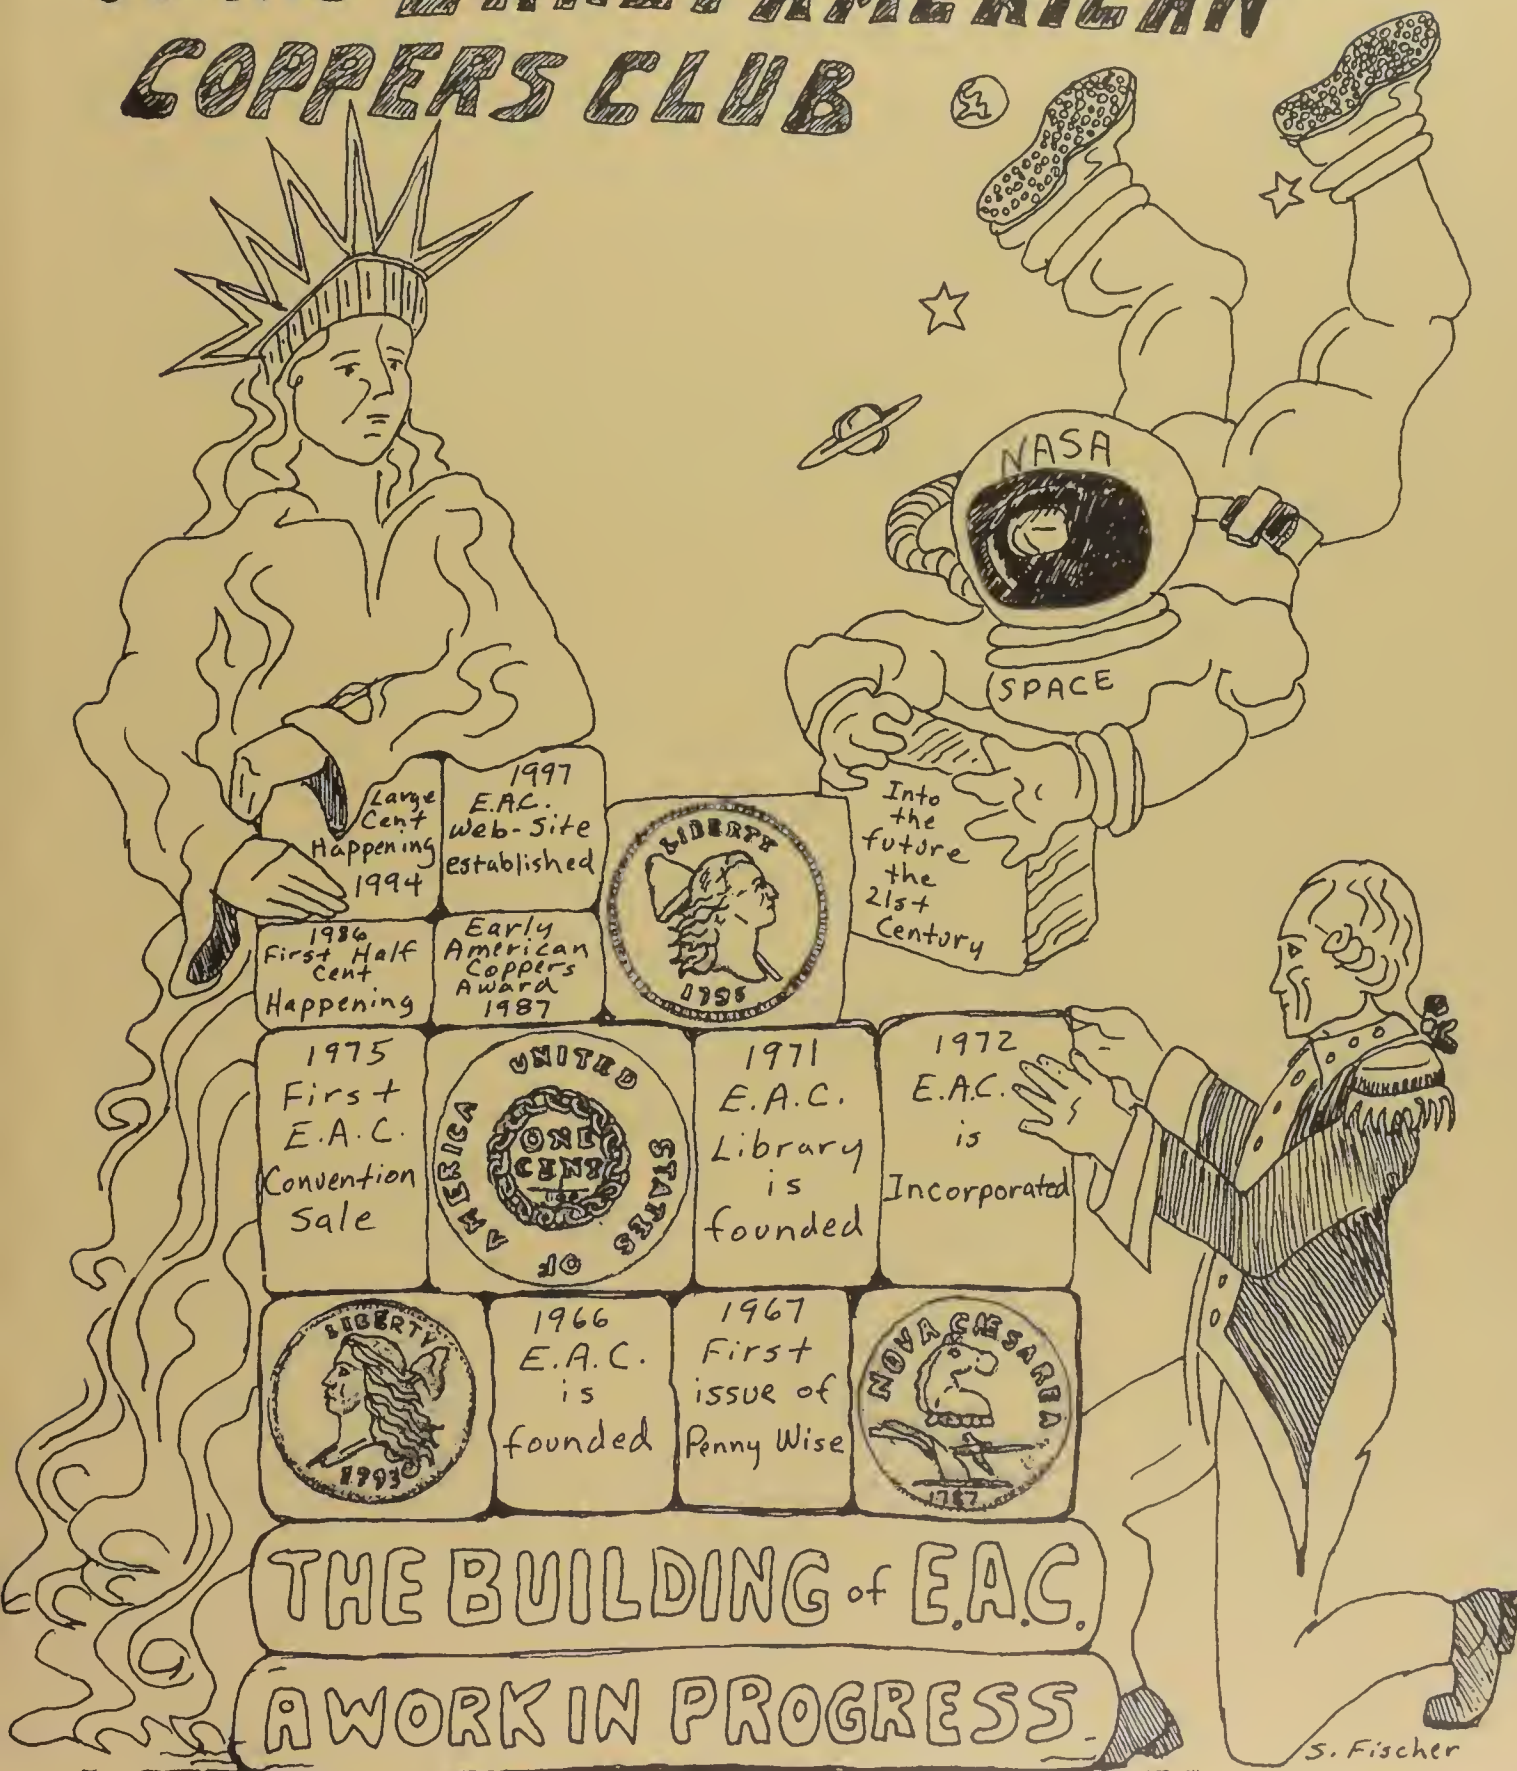 EARLY AMERICAN
COPPERS CLUB
NASA
SPACE
Large
Cent
Happening
1994
1997
E.A.C.
Web-Site
established
LIBERTY
Into
the
future
the
21st
Century
1986
First Half
Cent
Happening
Early
American
Coppers
Award
1987
1975
First
E.A.C.
Convention
Sale
UNITED
STATES
OF
AMERICA
ONE
CENT
1971
E.A.C.
Library
is
founded
1972
E.A.C.
is
Incorporated
LIBERTY
1793
1966
E.A.C.
is
founded
1967
First
issue of
Penny Wise
NOVA CÆSAREA
1787
THE BUILDING of E.A.C.
A WORK IN PROGRESS
S. Fischer